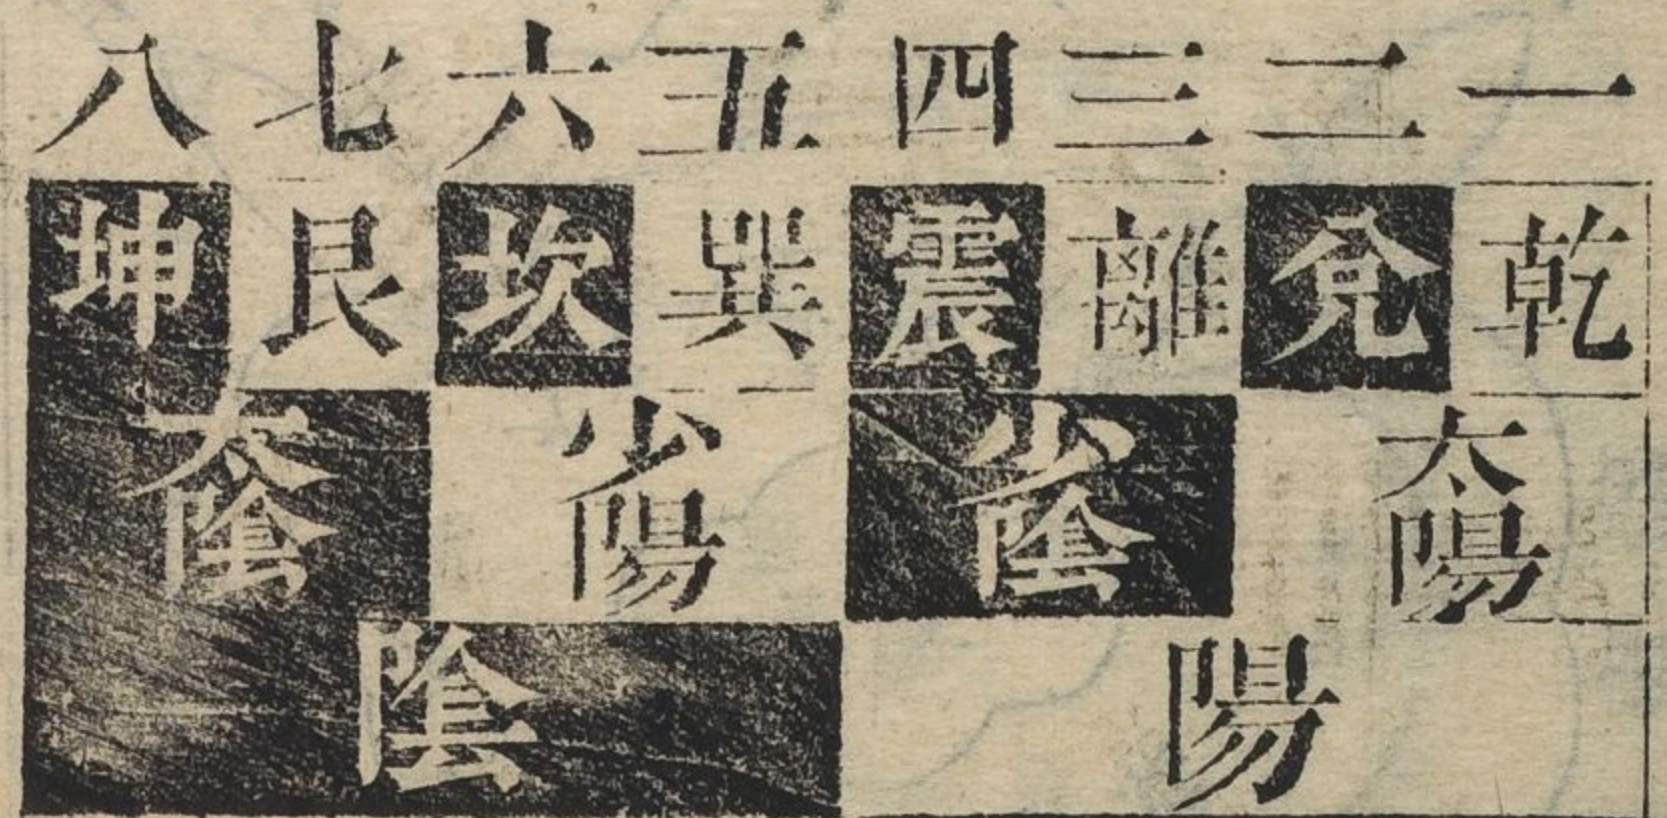 一二三四五六七八
乾兌離震巽坎艮坤
太陽少陰少陽太陰
陽陰